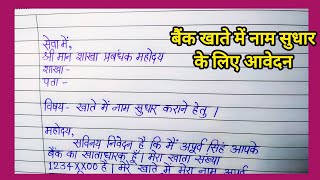 बैंक खाते में नाम सुधार
के लिए आवेदन
सेवा में,
श्री मान शाखा प्रबंधक महोदय
शाखा -
पता -
विषय- खाते में नाम सुधार कराने हेतु ।
महोदय,
सविनय निवेदन है कि मैं अपूर्व सिंह आपके
बैंक का खाताधारक हूँ । मेरा खाता संख्या
1234XX00 है । मेरे खाते में मेरा नाम अपूर्व